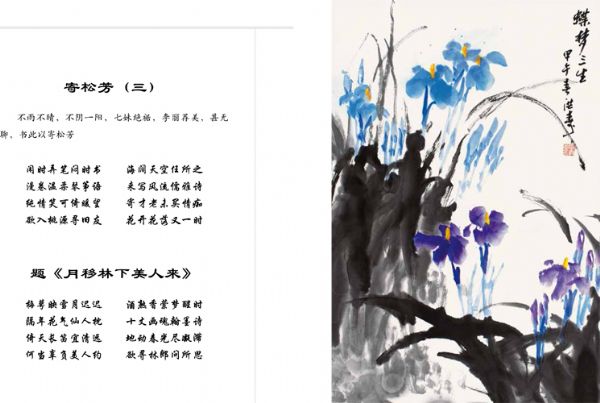 寄松芳（三）
不雨不晴，不阴一阳，七妹绝福，季丽荐美，甚无
聊，书此以寄松芳
闲时弄笔闷时书 海阔天空任所之
漫卷温柔琴筝语 来写风流儒雅诗
纯情笑可倚暖望 寄才老未买情痴
欲入桃源寻旧友 花开花落又一时
题《月移林下美人来》
梅萼映雪月迟迟 酒熟香萦梦醒时
隔年花气仙人枕 十丈画魂翰墨诗
倚天长笛宜清远 地动春光尽凝滞
何当辜负美人约 欲寻林郎问所思
蝶梦三生
甲午春